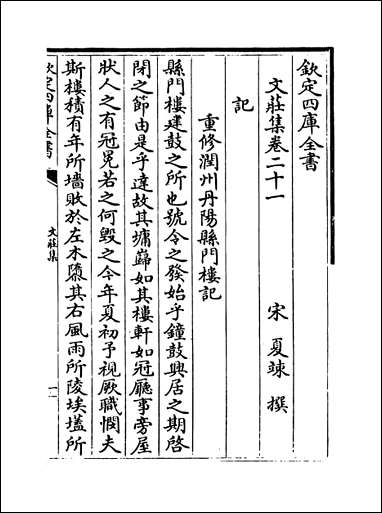 欽定四庫全書
文莊集卷二十一
宋 夏竦 撰
記
重修潤州丹陽縣門樓記
縣門樓建鼓之所也號令之發始乎鐘鼓興居之期啓
閉之節由是乎達故其墉巋如其樓軒如冠廳事旁屋
狀人之有冠冕若之何毁之今年夏初予視厥職憫夫
斯樓積有年所墻敗於左木隳其右風雨所陵埃壒所
欽定四庫全書
文莊集
一